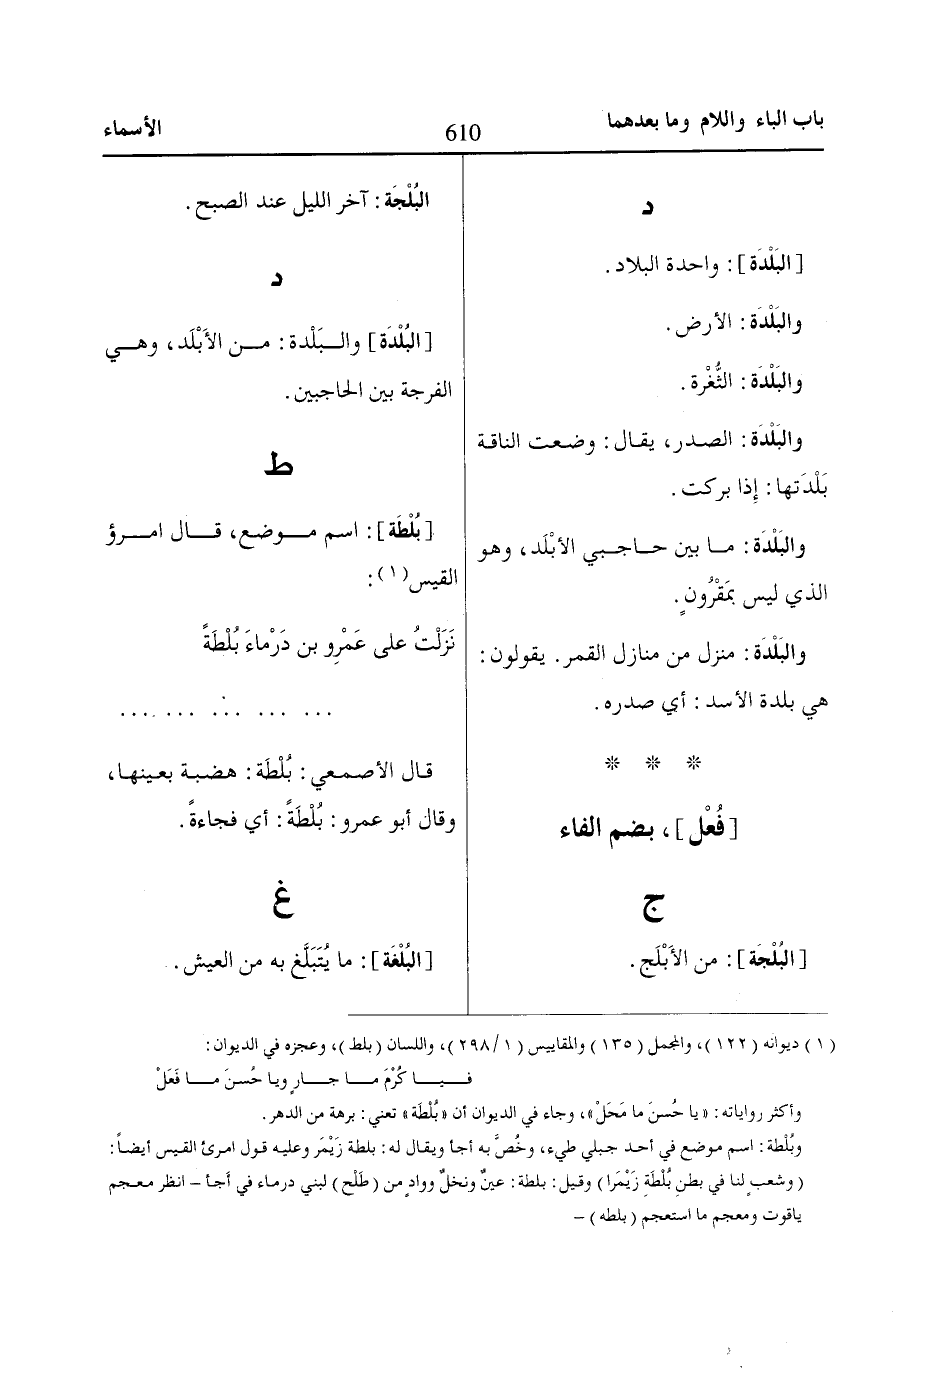 باب الباء واللام وما بعدهما
610
الأسماء
د
[البَلْدَة]: واحدة البلاد.
والبَلْدَة: الأرض.
والبَلْدَة: الثُّغْرة.
والبَلْدَة: الصدر، يقال: وضعت الناقة
بَلْدَتها: إذا بركت.
والبَلْدَة: ما بين حاجبي الأبْلَد، وهو
الذي ليس بمَقْرُونٍ.
والبَلْدَة: منزل من منازل القمر. يقولون:
هي بلدة الأسد: أي صدره.
* * *
[فُعْل]، بضم الفاء
ج
[البُلْجَة]: من الأَبْلَج.
البُلْجَة: آخر الليل عند الصبح.
د
[البُلْدَة] والبَلْدة: من الأَبْلَد، وهي
الفرجة بين الحاجبين.
ط
[بُلْطَة]: اسم موضع، قال امرؤ
القيس(١):
نَزَلْتُ على عَمْرِو بن دَرْماءَ بُلْطَةً
... ... ... ... ...
قال الأصمعي: بُلْطَة: هضبة بعينها،
وقال أبو عمرو: بُلْطَةً: أي فجاءةً.
غ
[البُلْغَة]: ما يُتَبَلَّغ به من العيش.
(١) ديوانه (١٢٢)، والمجمل (١٣٥) والمقاييس (١/٢٩٨)، واللسان (بلط)، وعجزه في الديوان:
فيا كُرْمَ ما جارٍ ويا حُسنَ ما فَعَلْ
وأكثر رواياته: «يا حُسنَ ما مَحَلْ»، وجاء في الديوان أن «بُلْطَة» تعني: برهة من الدهر.
وبُلْطَة: اسم موضع في أحد جبلي طيء، وخُصَّ به أجأ ويقال له: بلطة زَيْمَر وعليه قول امرئ القيس أيضاً:
(وشعبٍ لنا في بطنِ بُلْطَةِ زَيْمَرا) وقيل: بلطة: عينٌ ونخلٌ ووادٍ من (طَلْح) لبني درماء في أجأ – انظر معجم
ياقوت ومعجم ما استعجم (بلطه) –